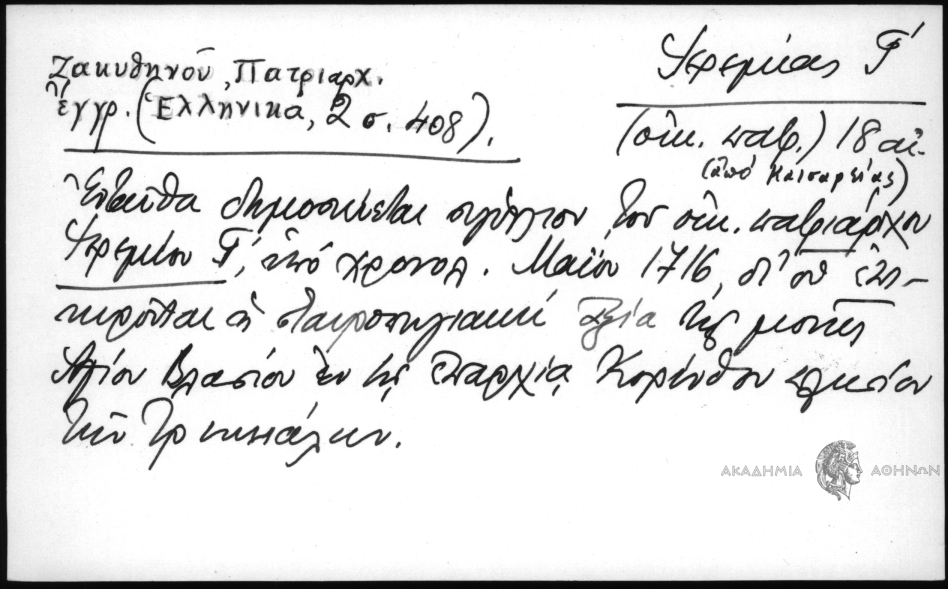 Ζακυθηνοῦ, Πατριαρχ.
ἔγγρ. (Ἑλληνικα, 2 σ. 408).
Ἱερεμίας Γ΄
(οἰκ. πατρ.) 18 αἰ.
(ἀπό Καισαρείας)
Ἐνταῦθα δημοσιεύεται σιγίλλιον τοῦ οἰκ. πατριάρχου
Ἱερεμίου Γ΄, ἀπό χρονολ. Μαΐου 1716, δι' οὗ ἐπι-
κυροῦται ἡ σταυροπηγιακή ἀξία τῆς μονῆς
Ἁγίου Βλασίου ἐν τῇ ἐπαρχίᾳ Κορίνθου πλησίον
τῶν Τρικκάλων.
ΑΚΑΔΗΜΙΑ ΑΘΗΝΩΝ